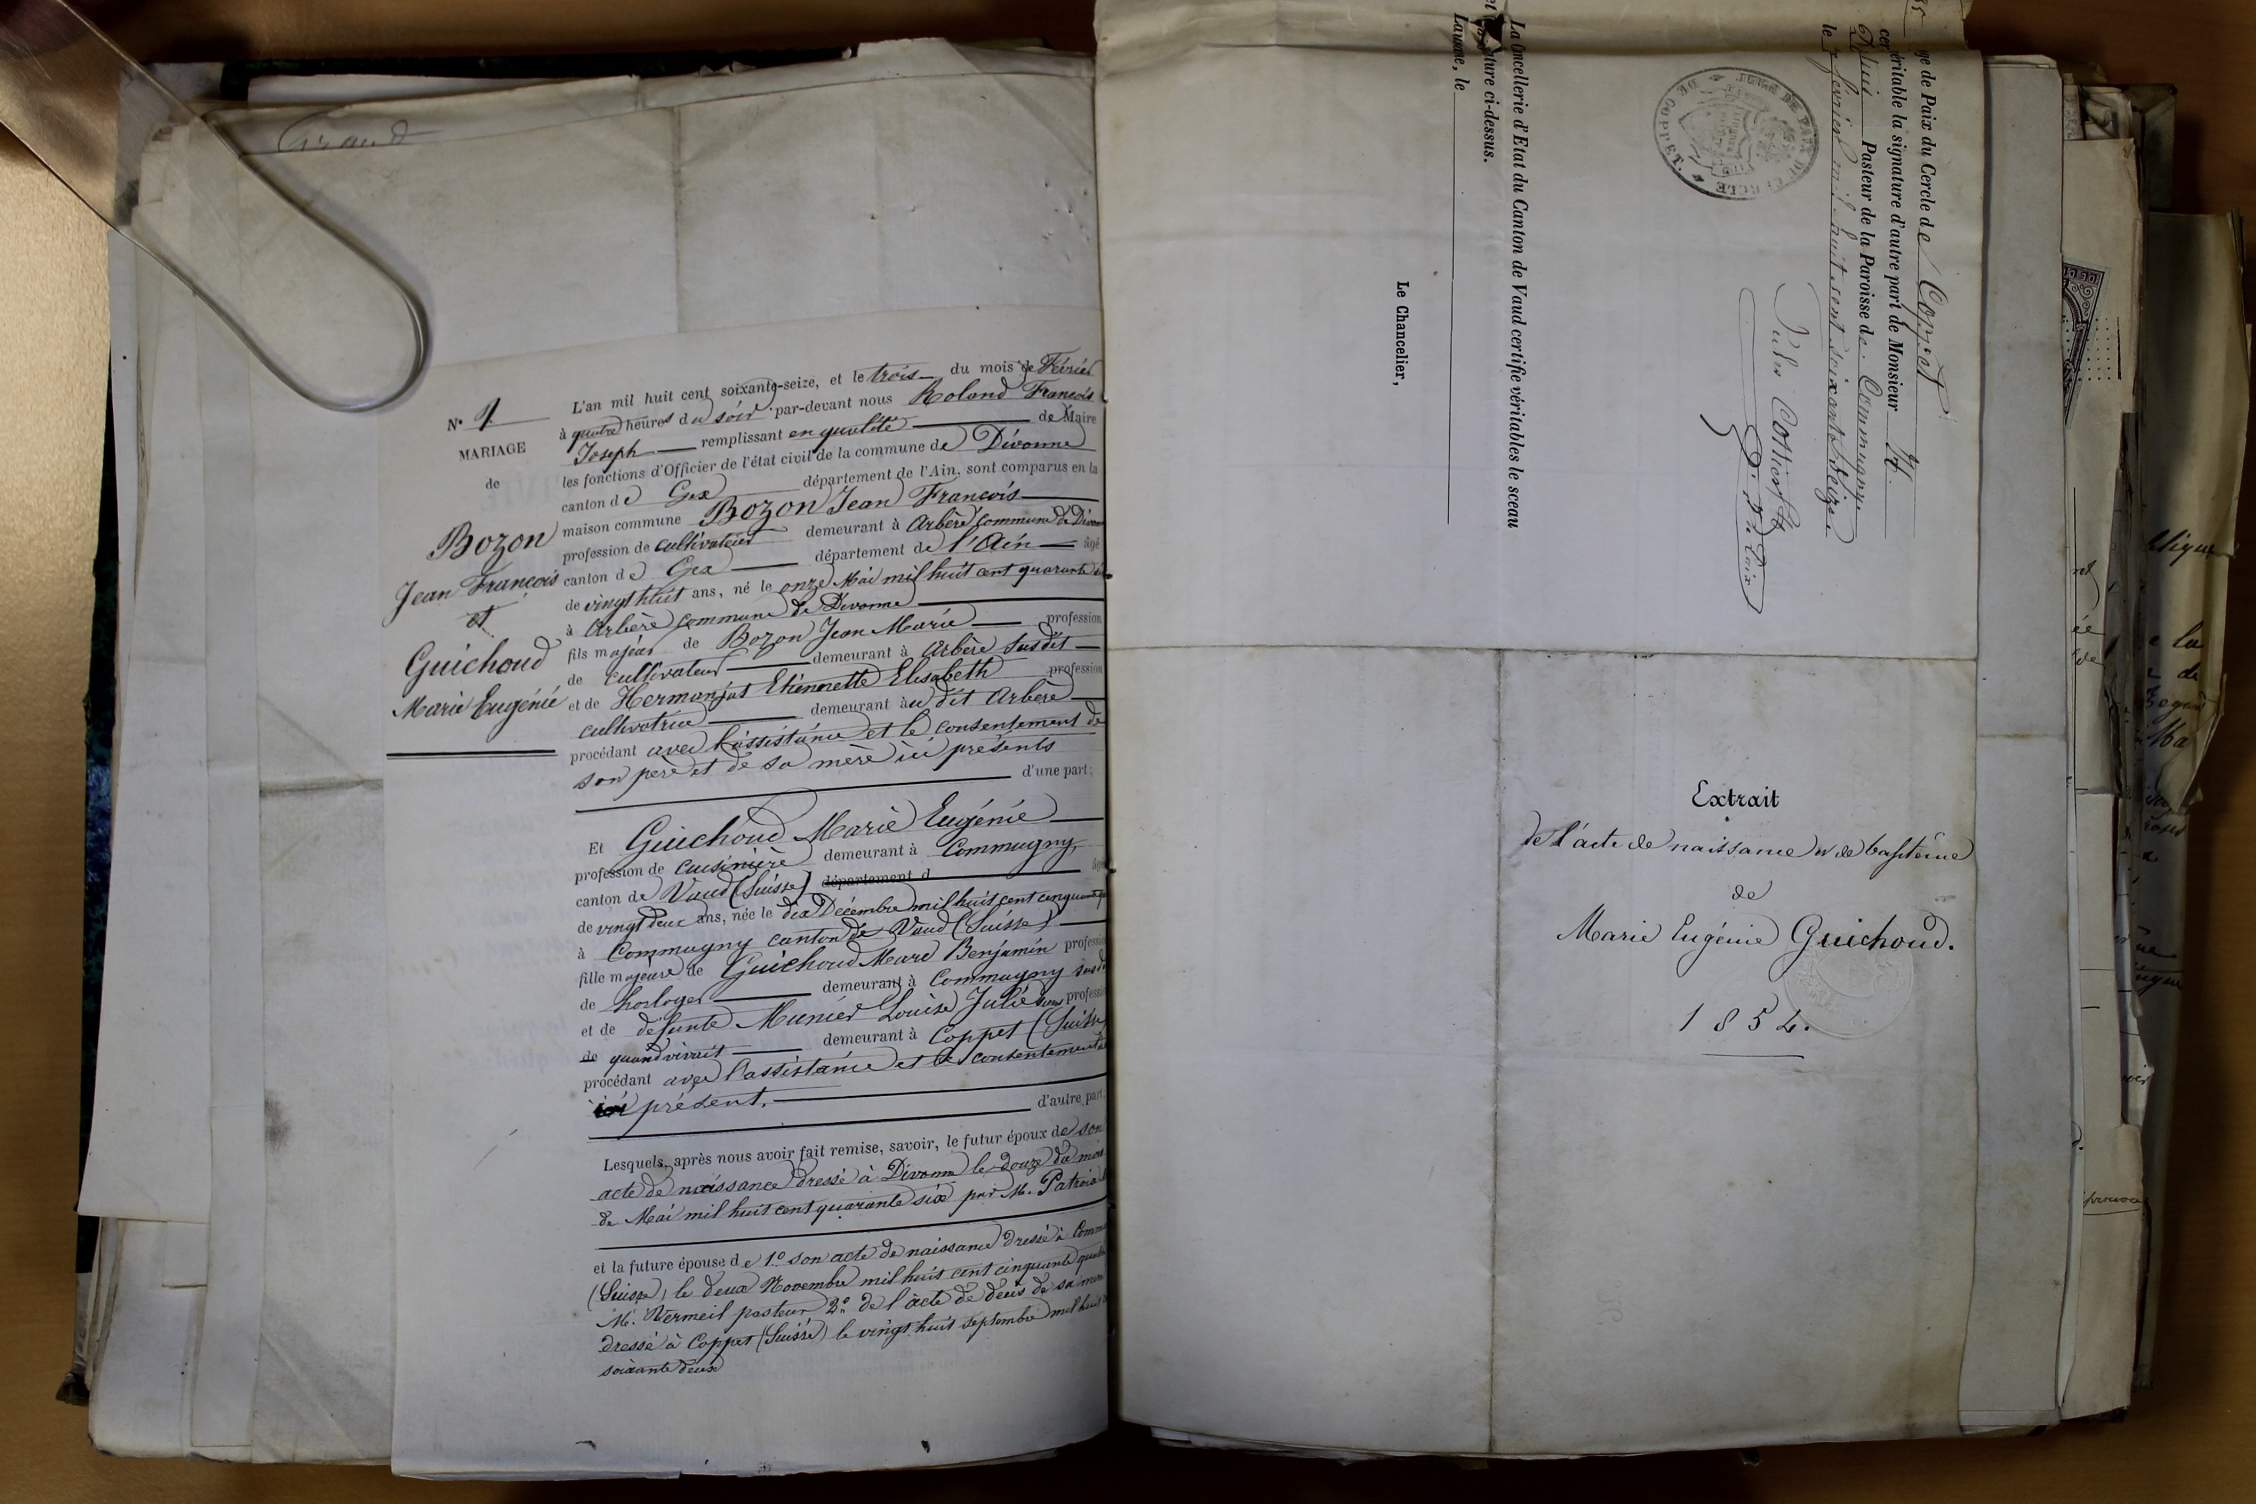 Giraud
N° 1
MARIAGE
de
Bozon
Jean François
et
Guichoud
Marie Eugénie
L'an mil huit cent soixante-seize, et le trois du mois de Février
à quatre heures du soir par-devant nous Roland François
Joseph remplissant en qualité de Maire
les fonctions d'Officier de l'état civil de la commune de Divonne
canton de Gex département de l'Ain, sont comparus en la
maison commune Bozon Jean François
profession de cultivateur demeurant à Arbère commune de Divonne
canton de Gex département de l'Ain âgé
de vingt huit ans, né le onze Mai mil huit cent quarante
à Arbère commune de Divonne
fils majeur de Bozon Jean Marie profession
de cultivateur demeurant à Arbère susdit
et de Hermanjat Etiennette Elisabeth profession
cultivatrice demeurant au dit Arbère
procédant avec l'assistance et le consentement de
son père et de sa mère ici présents
d'une part;
Et Guichoud Marie Eugénie
profession de cuisinière demeurant à Commugny
canton de Vaud (Suisse) département d âgé
de vingt deux ans, née le dix Décembre mil huit cent cinquante
à Commugny canton de Vaud (Suisse)
fille majeure de Guichoud Marc Benjamin profession
de horloger demeurant à Commugny susdit
et de défunte Munier Louise Julie sans profession
de quand vivait demeurant à Coppet (Suisse)
procédant avec l'assistance et le consentement
ici présent.
d'autre part
Lesquels, après nous avoir fait remise, savoir, le futur époux de son
acte de naissance dressé à Divonne le douze du mois
de Mai mil huit cent quarante six par M. Patroix
et la future épouse de 1° son acte de naissance dressé à Comm
(Suisse) le deux Novembre mil huit cent cinquante quatre
M. Vermeil pasteur 2° de l'acte de décès de sa mère
dressé à Coppet (Suisse) le vingt huit septembre mil huit
soixante deux
ge de Paix du Cercle de Coppet
cer éritable la signature d'autre part de Monsieur A.
Pasteur de la Paroisse de Commugny
le février mil huit cent soixante seize
JUGE DE PAIX DU CERCLE DE COPPET
Jules Cottier
La ncellerie d'Etat du Canton de Vaud certifie véritables le sceau
et ature ci-dessus.
Lau ne, le
Le Chancelier,
Extrait
de l'acte de naissance et de baptême
de
Marie Eugénie Guichoud.
1854.